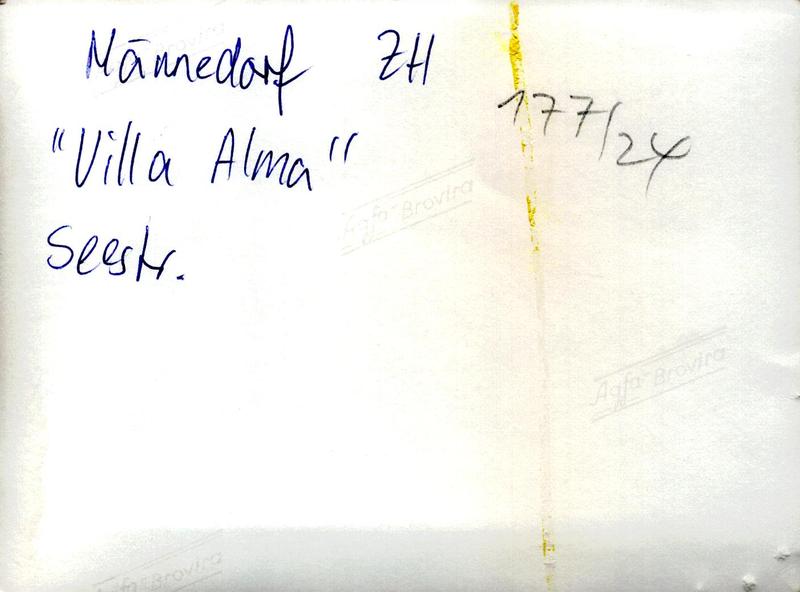 Männedorf ZH
177/24
"Villa Alma"
Seestr.
Agfa-Brovira
Agfa-Brovira
Agfa-Brovira